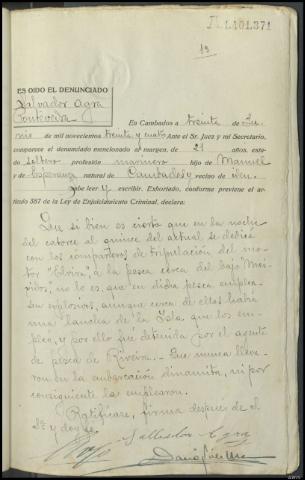 A1.101.371
19
ES OIDO EL DENUNCIADO
Salvador Agra
Pontevedra
En Cambados a treinta de Ju-
nio de mil novecientos treinta y cuatro Ante el Sr. Juez y mi Secretario,
comparece el denunciado mencionado al margen, de 21 años, esta-
do soltero profesión marinero hijo de Manuel
y de Esperanza natural de Cambados y vecino de idem.
sabe leer y escribir. Exhortado, conforme previene el ar-
tículo 387 de la Ley de Enjuiciamiento Criminal, declara:
Que si bien es cierto que en la noche
del catorce al quince del actual se dedicó
con los compañeros de tripulación del mo-
tor "Elvira", a la pesca cerca del bajo
no lo es, que en dicha pesca emplea-
sen explosivos, aunque cerca de ellos había
una lancha de la Isla que los em-
plea, y por ello fué detenida por el agente
de pesca de Riveira.- Que nunca lleva-
ron en la embarcación dinamita, ni por
consiguiente las emplearon.
Ratifícase, firma después de el
Sr. y doy fe.
Sallvador Agra